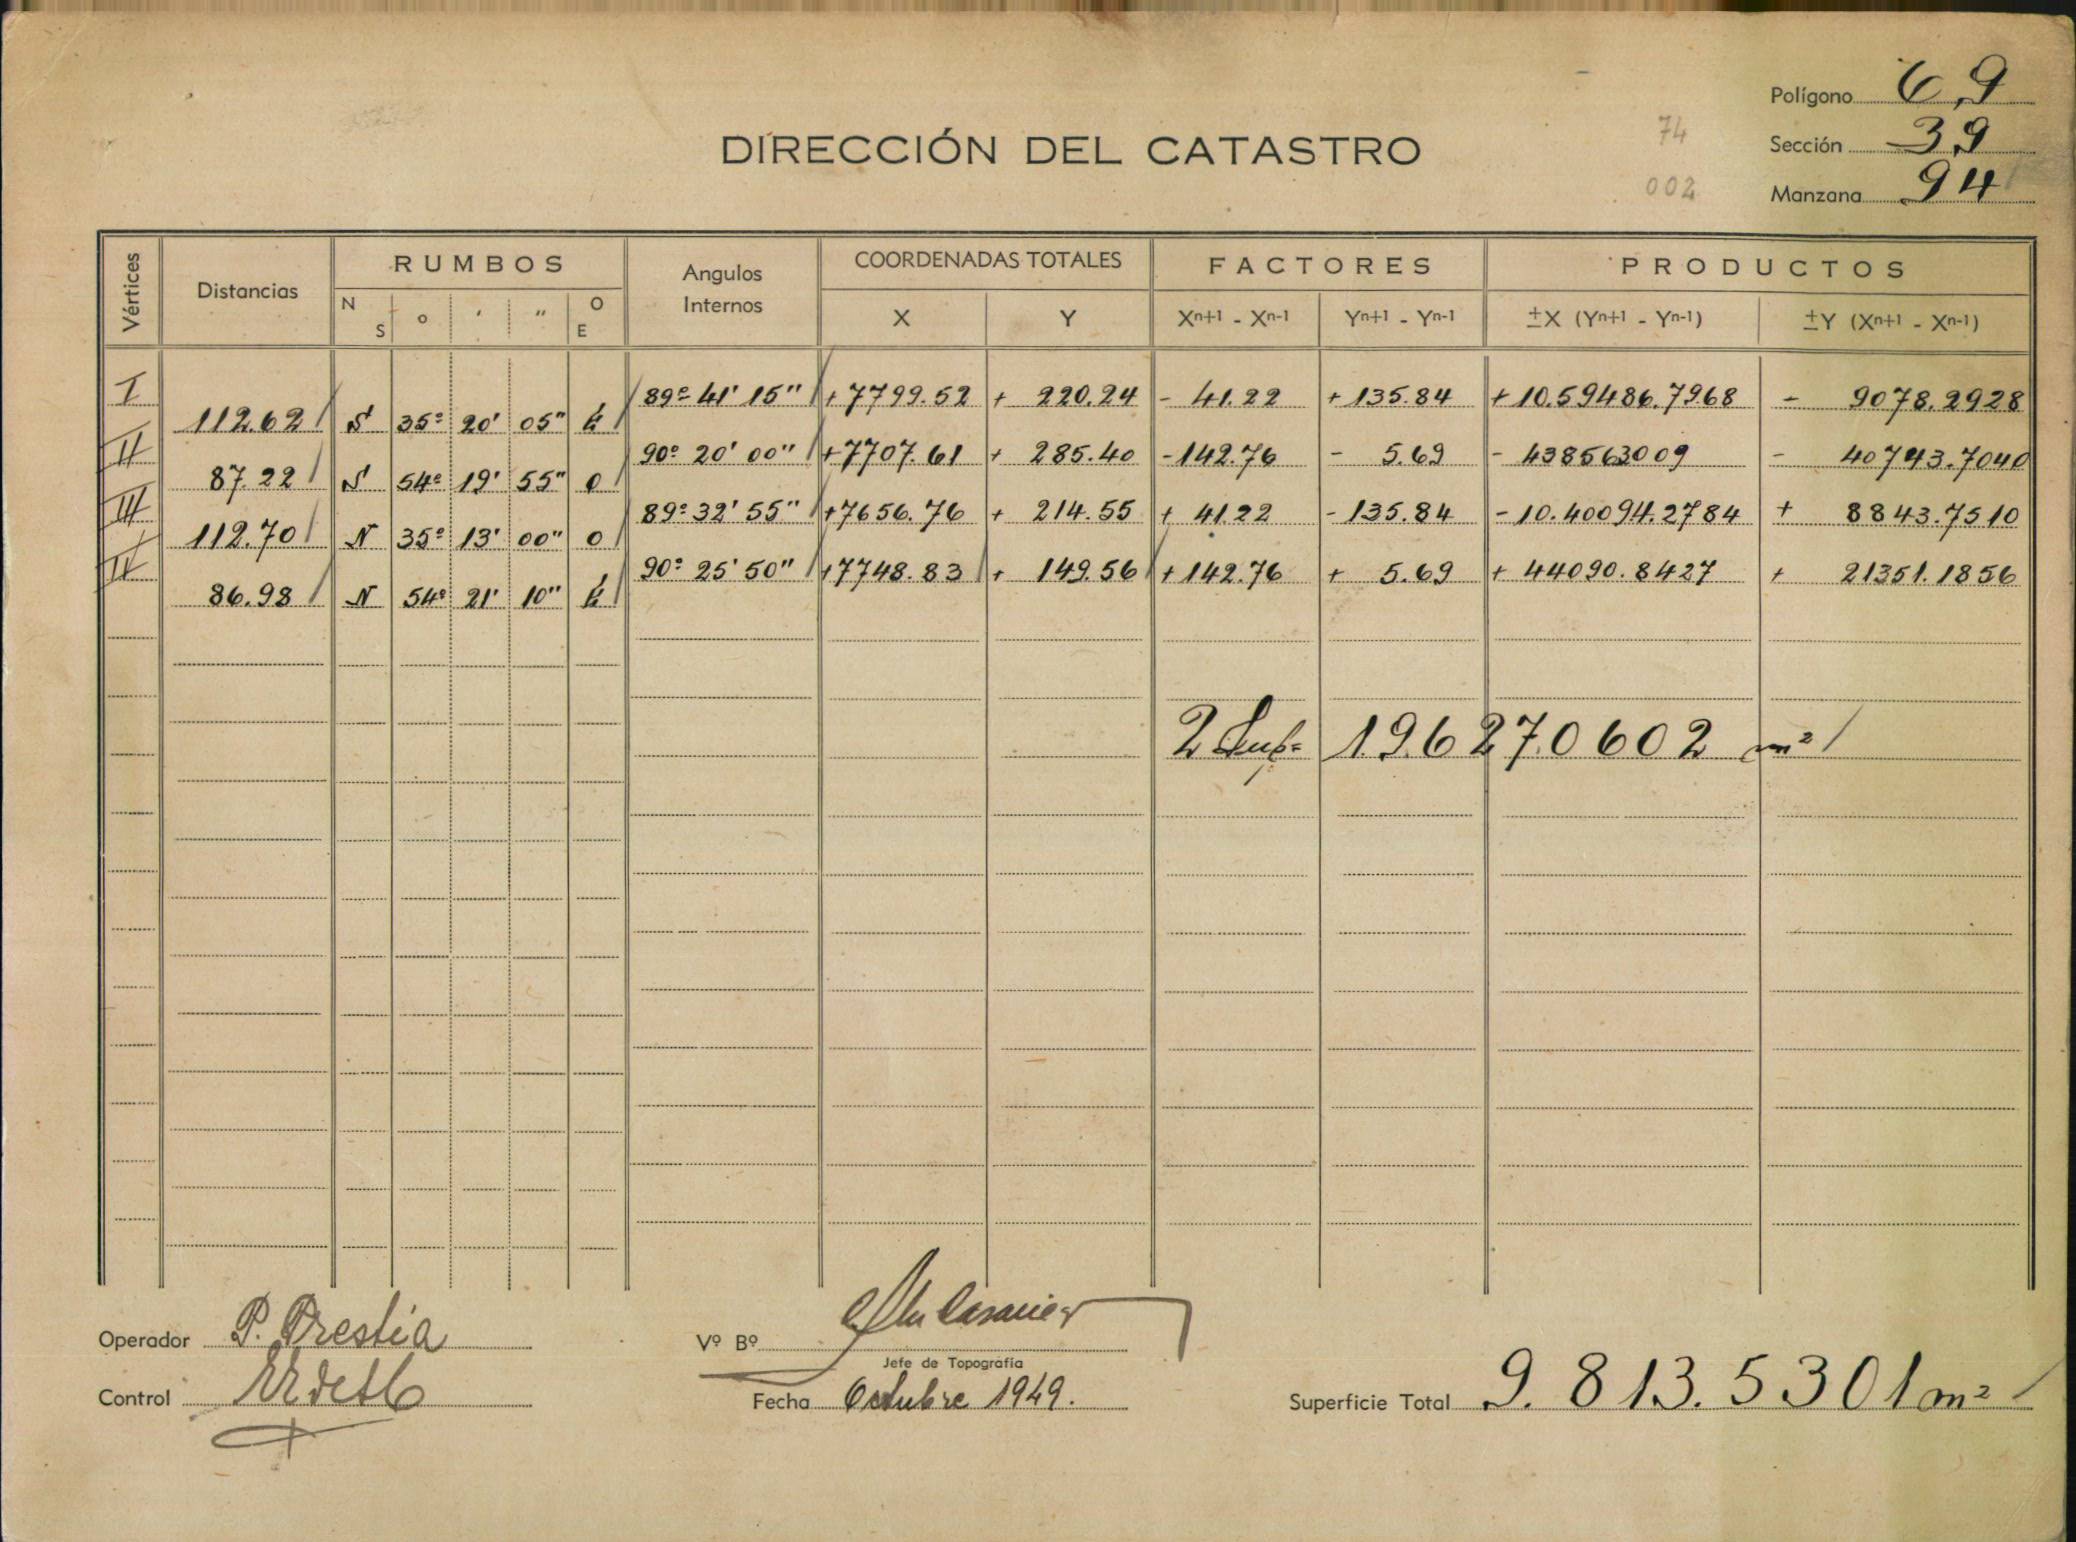 Polígono 69
DIRECCIÓN DEL CATASTRO
74
Sección 39
002
Manzana 94
Vértices Distancias RUMBOS Angulos Internos COORDENADAS TOTALES FACTORES PRODUCTOS
N S o ' " O E X Y Xn+1 - Xn-1 Yn+1 - Yn-1 ±X (Yn+1 - Yn-1) ±Y (Xn+1 - Xn-1)
I 89º 41' 15" +7799.52 + 220.24 - 41.22 + 135.84 + 10.59486.7968 - 9078.2928
112.62 S 35º 20' 05" E
II 90º 20' 00" +7707.61 + 285.40 -142.76 - 5.69 - 438563009 - 40743.7040
87.22 S 54º 19' 55" O
III 89º 32' 55" +7656.76 + 214.55 + 41.22 - 135.84 - 10.40094.2784 + 8843.7510
112.70 N 35º 13' 00" O
IV 90º 25' 50" +7748.83 + 149.56 + 142.76 + 5.69 + 44090.8427 + 21351.1856
86.98 N 54º 21' 10" E
2 Sup= 19.6270602 m²
Operador P. Prestia
Vº Bº
Jefe de Topografía
Control
Fecha Octubre 1949.
Superficie Total 9.813.5301 m²